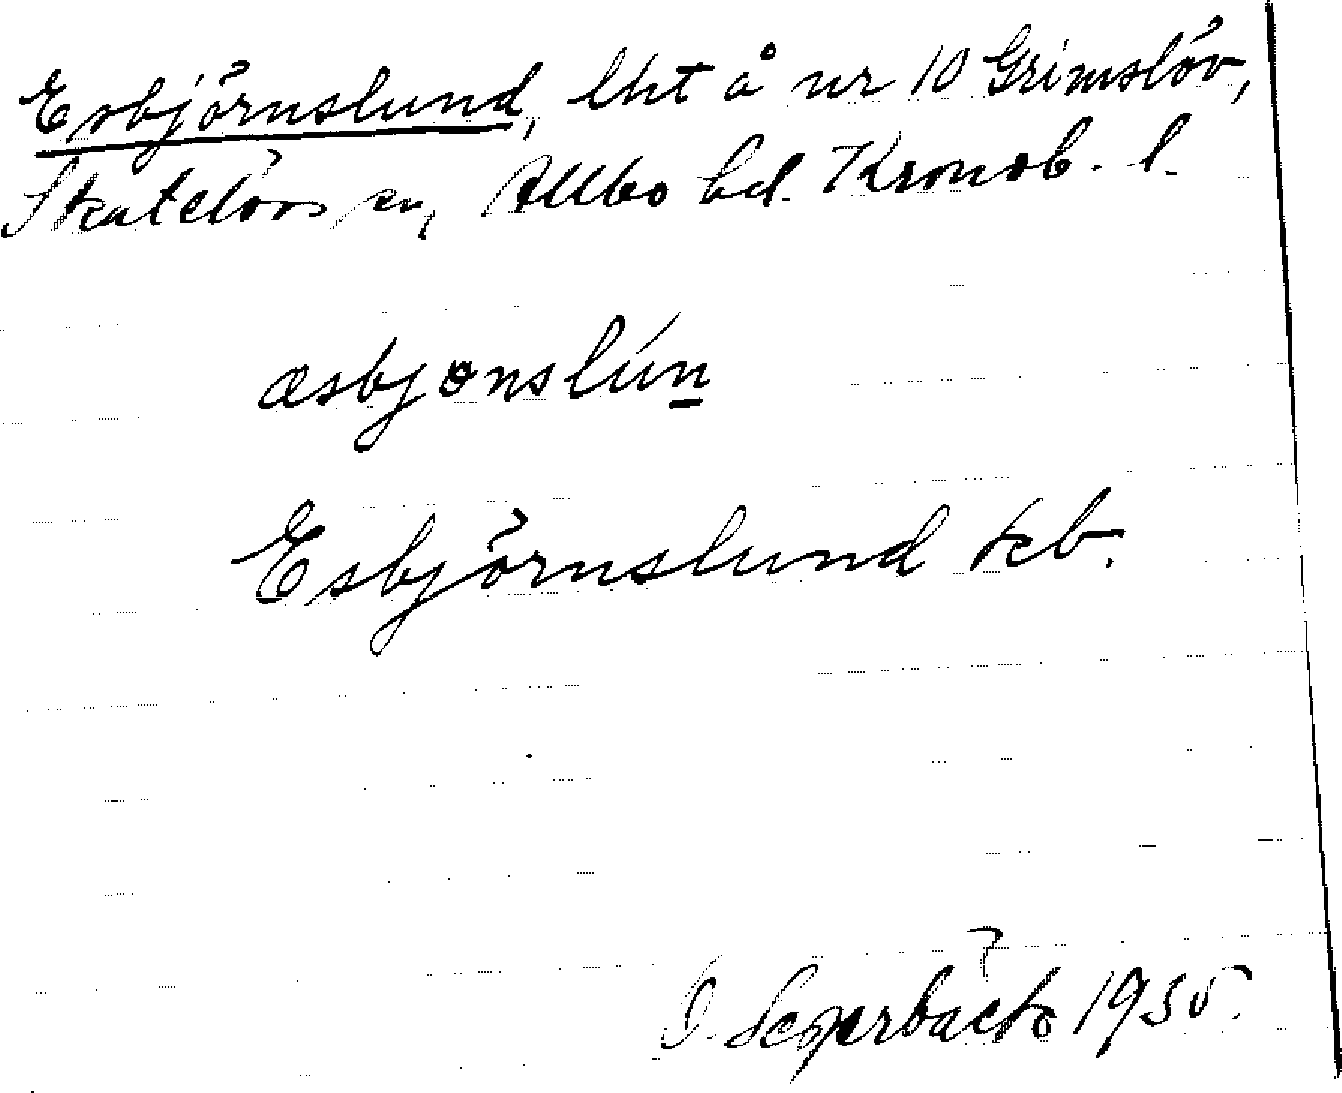 Esbjörnslund, lht å nr 10 Grimslöv,
Skatelövs sn, Allbo hd. Kronob. l.
æsbjønslún
Esbjörnslund kb.
O. Segerbäck 1935.